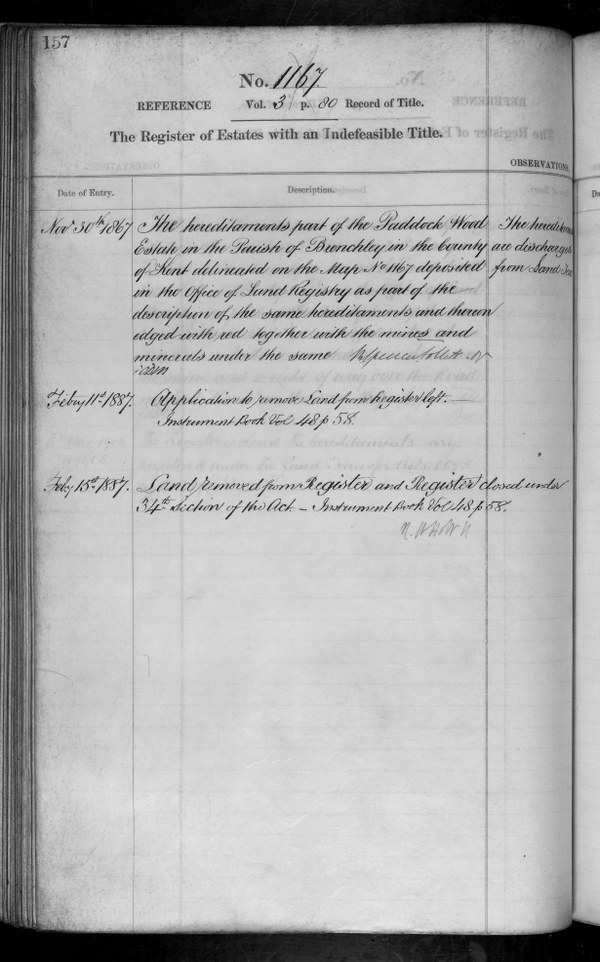 157
No. 1167.
REFERENCE Vol. 3 p. 80 Record of Title.
The Register of Estates with an Indefeasible Title.
OBSERVATIONS
Date of Entry.
Description.
Novr 30th 1867
The hereditaments part of the Paddock Wood
Estate in the Parish of Brenchley in the County
of Kent delineated on the Map No 1167 deposited
in the Office of Land Registry as part of the
description of the same hereditaments and thereon
edged with red together with the mines and
minerals under the same
The heredita
are discharged
from Land Tax
Feby 11th 1887.
Application to remove Land from Register left.—
Instrument Book Vol 48 p 58.
Feby 15th 1887.
Land removed from Register and Register closed under
34th Section of the Act – Instrument Book Vol 48 p 58.